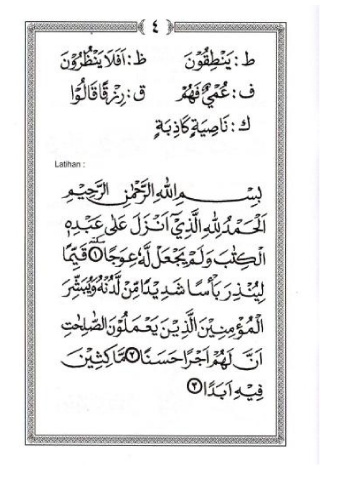 ٤
ط : يَنْطِقُوْنَ ظ : اَفَلَا يَنْظُرُوْنَ
ف : عُمْيٌ فَهُمْ ق : رِزْقًا قَالُوْا
ك : نَاصِيَةٍ كَاذِبَةٍ
Latihan :
بِسْمِ اللهِ الرَّحْمٰنِ الرَّحِيْمِ
اَلْحَمْدُ لِلّٰهِ الَّذِيْٓ اَنْزَلَ عَلٰى عَبْدِهِ
الْكِتٰبَ وَلَمْ يَجْعَلْ لَّهٗ عِوَجًا ۜ ١ قَيِّمًا
لِّيُنْذِرَ بَأْسًا شَدِيْدًا مِّنْ لَّدُنْهُ وَيُبَشِّرَ
الْمُؤْمِنِيْنَ الَّذِيْنَ يَعْمَلُوْنَ الصّٰلِحٰتِ
اَنَّ لَهُمْ اَجْرًا حَسَنًا ٢ مَّاكِثِيْنَ
فِيْهِ اَبَدًا ٣